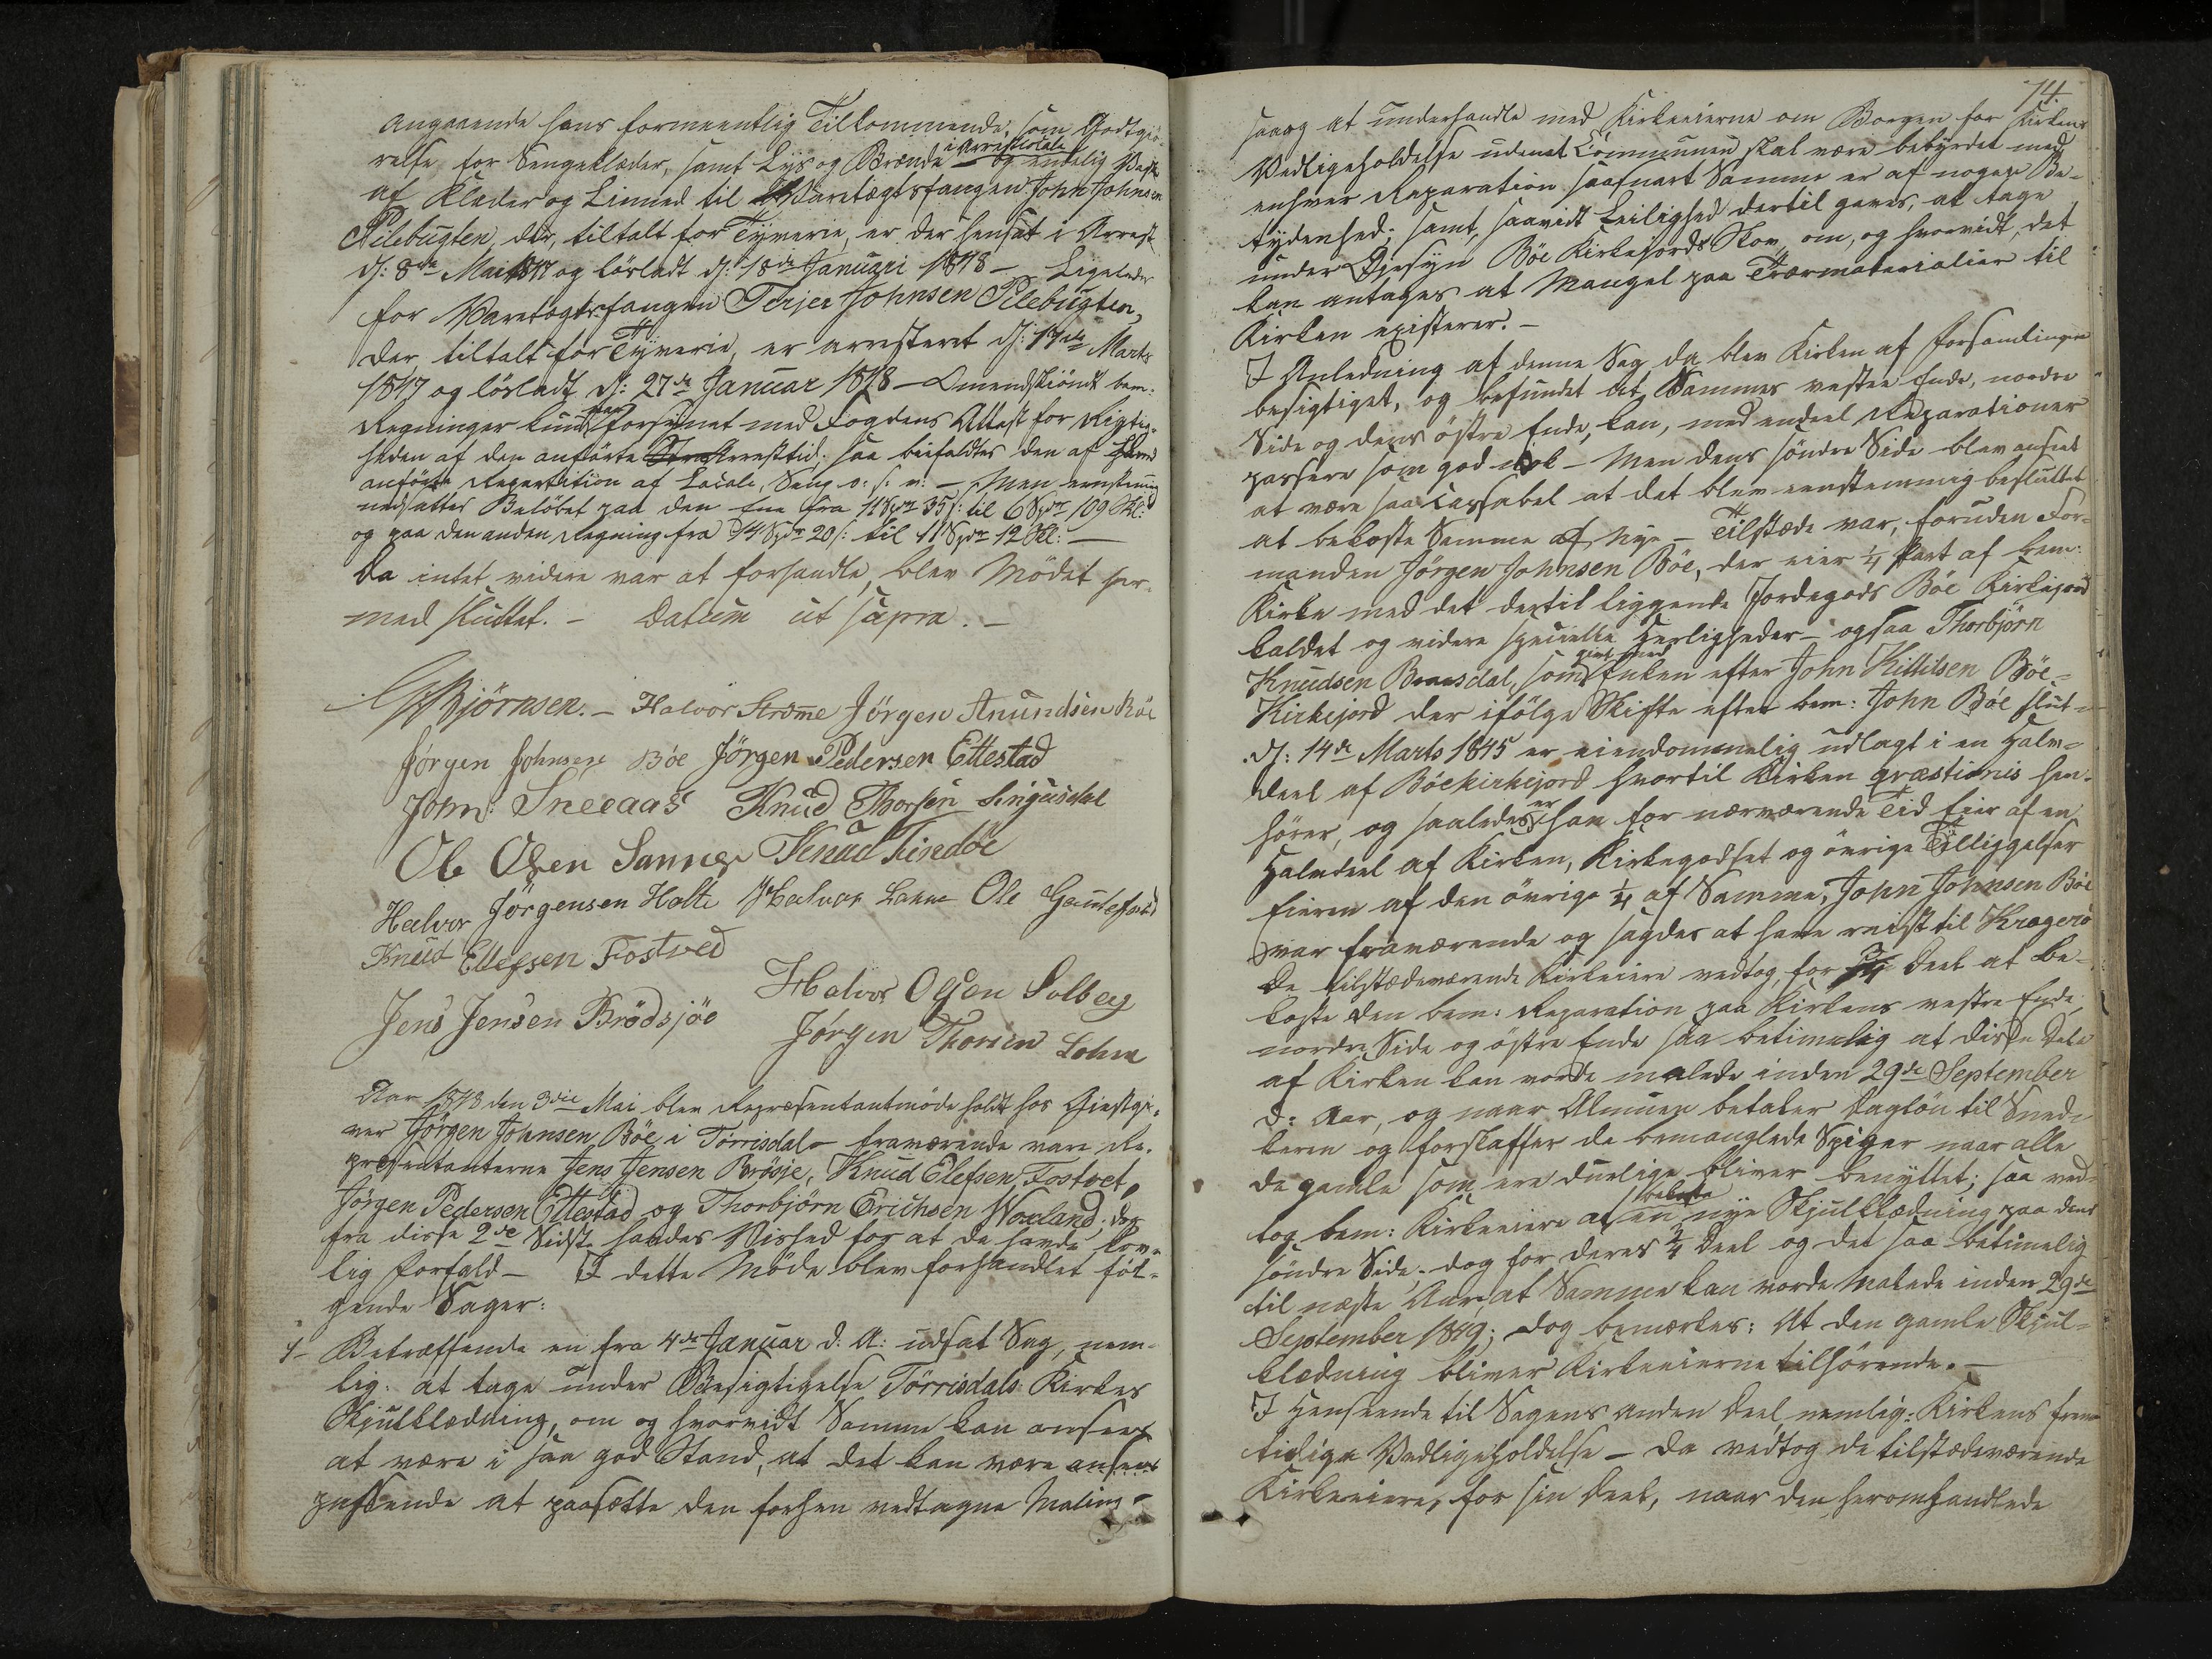 angaaende hans formeentlig Tilkommende, som Godtgjö-
relse for Sengeklæder, samt Lys og Brænde i Arrestlocale og endelig Vask
af Klæder og Linned til Varetægtsfangen John Johnsen
Pilebugten, der, tiltalt for Tyverie, er der hensat i Arrest
d: 8de Mai 1847 og lösladt d: 18de Januari 1848 – Ligeledes
for Varetægtsfangen Terjer Johnsen Pilebugten,
der tiltalt for Tyverie, er arresteret d: 17de Marts
1847 og lösladt d: 27de Januar 1848 – Omendskiöndt bem:
Regninger kun var forsynet med Fogdens Attest for Rigtig-
heden af den anförte Arresttid; saa bifaldtes den af Ham
anförte Repartition af Locale, Seng o: s: v: – Men
nedsattes Belöbet paa den Ene fra 11 Spdr 35 s: til 6 Spdr 109 Skl:
og paa den anden Regning fra 14 Spdr 20 s: til 11 Spdr 12 Skl: –
Da intet videre var at forhandle, blev Mödet her-
med sluttet. – Datum ut supra. –
Björnsen. – Halvor Strömme Jörgen Anundsen Böe
Jörgen Johnsen Böe Jörgen Pedersen Ettestad
John: Sneeaas Knud Thorsen Lingusdal
Ole Olsen Sannes Knud Tisedöe
Halvor Jörgensen Holte Halvor Lahne Ole Gautefald
Knud Ellefsen Fostved
Halvor Olsen Solberg
Jens Jensen Brödsjöe
Jörgen Thorsen Lohne
Aar 1848 den 3die Mai blev Repræsentantmöde holdt hos Giestgi-
ver Jörgen Johnsen Böe i Törrisdal – fraværende vare Re-
præsentanterne Jens Jensen Brösje, Knud Elefsen Fostvet,
Jörgen Pedersen Ettestad og Thorbjörn Erichsen Voxland; dog
fra disse 2de Sidste havdes Vished for at de havde lov-
lig Forfald – I dette Möde blev forhandlet föl-
gende Sager:
1– Betræffende en fra 4de Januar d: A: udsat Sag, nem-
lig: at tage under Besigtigelse Törrisdals Kirkes
Skjulklædning, om og hvorvidt Samme kan ansees
at være i saa god Stand, at det kan være ansees
passende at paasætte den forhen vedtagne Maling –
74.
saa og at underhandle med Kirkeeierne om Borgen for Kirkens
Vedligeholdelse uden at Communen skal være bebyrdet med
enhver Reparation saasnart Samme er af nogen Be-
tydenhed; samt, saavidt Leilighed dertil gaves, at tage
under Øjesyn Böe Kirkejords Skov, om, og hvorvidt, det
kan antages at Mangel paa Trærmaterialier til
Kirken existerer. –
I Anledning af denne Sag, da blev Kirken af Forsamlingen
besigtiget, og befundet at Sammes vestre Ende, nordre
Side og dens östre Ende, kan, med endeel Reparationer
passere som god nok – Men dens söndre Side blev anseet
at være saa cassabel at det blev eenstemmig besluttet
at bekoste Samme af Nye – Tilstæde var, foruden For-
manden Jörgen Johnsen Böe, der eier 1/4 Part af bem:
Kirke med det dertil liggende Jordegods Böe Kirkejord
kaldet og videre specielle Herligheder – ogsaa Thorbjörn
Knudsen Braasdal, som givt med Enken efter John Kittilsen Böe-
Kirkejord der ifölge Skifte efter bem: John Böe slut-
d: 14de Marts 1845 er eiendommelig udlagt i en Halv-
deel af Böekirkejord hvortil Kirken qræstionis hen-
hörer, og saaledes er han for nærværende Tid Eier af en
Halvdeel af Kirken, Kirkegodset og övrige Tilliggelser
Eieren af den övrige 1/4 af Samme, John Johnsen Böe
var fraværende og sagdes at have reist til Krageröe
De tilstædeværende Kirkeeiere vedtog, for 3/4 Deel at be-
koste den bem: Reparation paa Kirkens vestre Ende,
nordre Side og östre Ende saa betimelig at disse Dele
af Kirken kan vorde malede inden 29de September
d: Aar, og naar Almuen betaler Daglön til Sned-
keren og forskaffer de bemanglede Spiger naar alle
de gamle som ere duelige bliver benyttet; saa ved-
tog bem: Kirkeeiere at bekoste en nye Skjulklædning paa dens
söndre Side, dog for deres 3/4 Deel og det saa betimelig
til næste Aar, at Samme kan vorde malede inden 29de
September 1849; dog bemærkes: At den gamle Skjul-
klædning bliver Kirkeeierne tilhörende. –
I Henseende til Sagens anden Deel nemlig: Kirkens frem-
tidige Vedligeholdelse – da vedtog de tilstædeværende
Kirkeeiere, for sin Deel, naar den heromhandlede